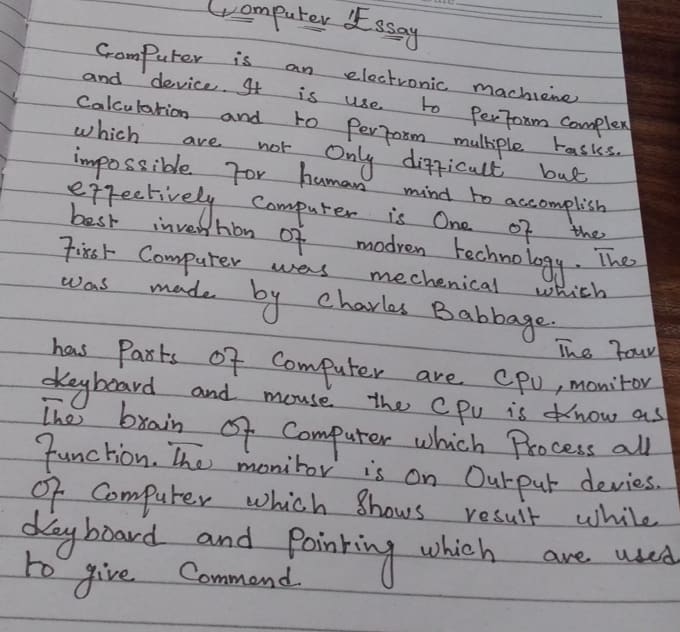 Computer Essay
Computer is an electronic machiene
and device. It is use to perform complex
Calculation and to perform multiple tasks.
which are not Only difficult but
impossible for human mind to accomplish
effectively Computer is One of the
best invention of modren technology. The
First Computer was mechenical which
was made by Charles Babbage.
The four
has Parts of Computer are CPU, monitor
Keyboard and mouse the CPU is know as
The brain of Computer which Process all
Function. The monitor is on Output devies.
Of Computer which Shows result while
Keyboard and Pointing which are used
to give Commend